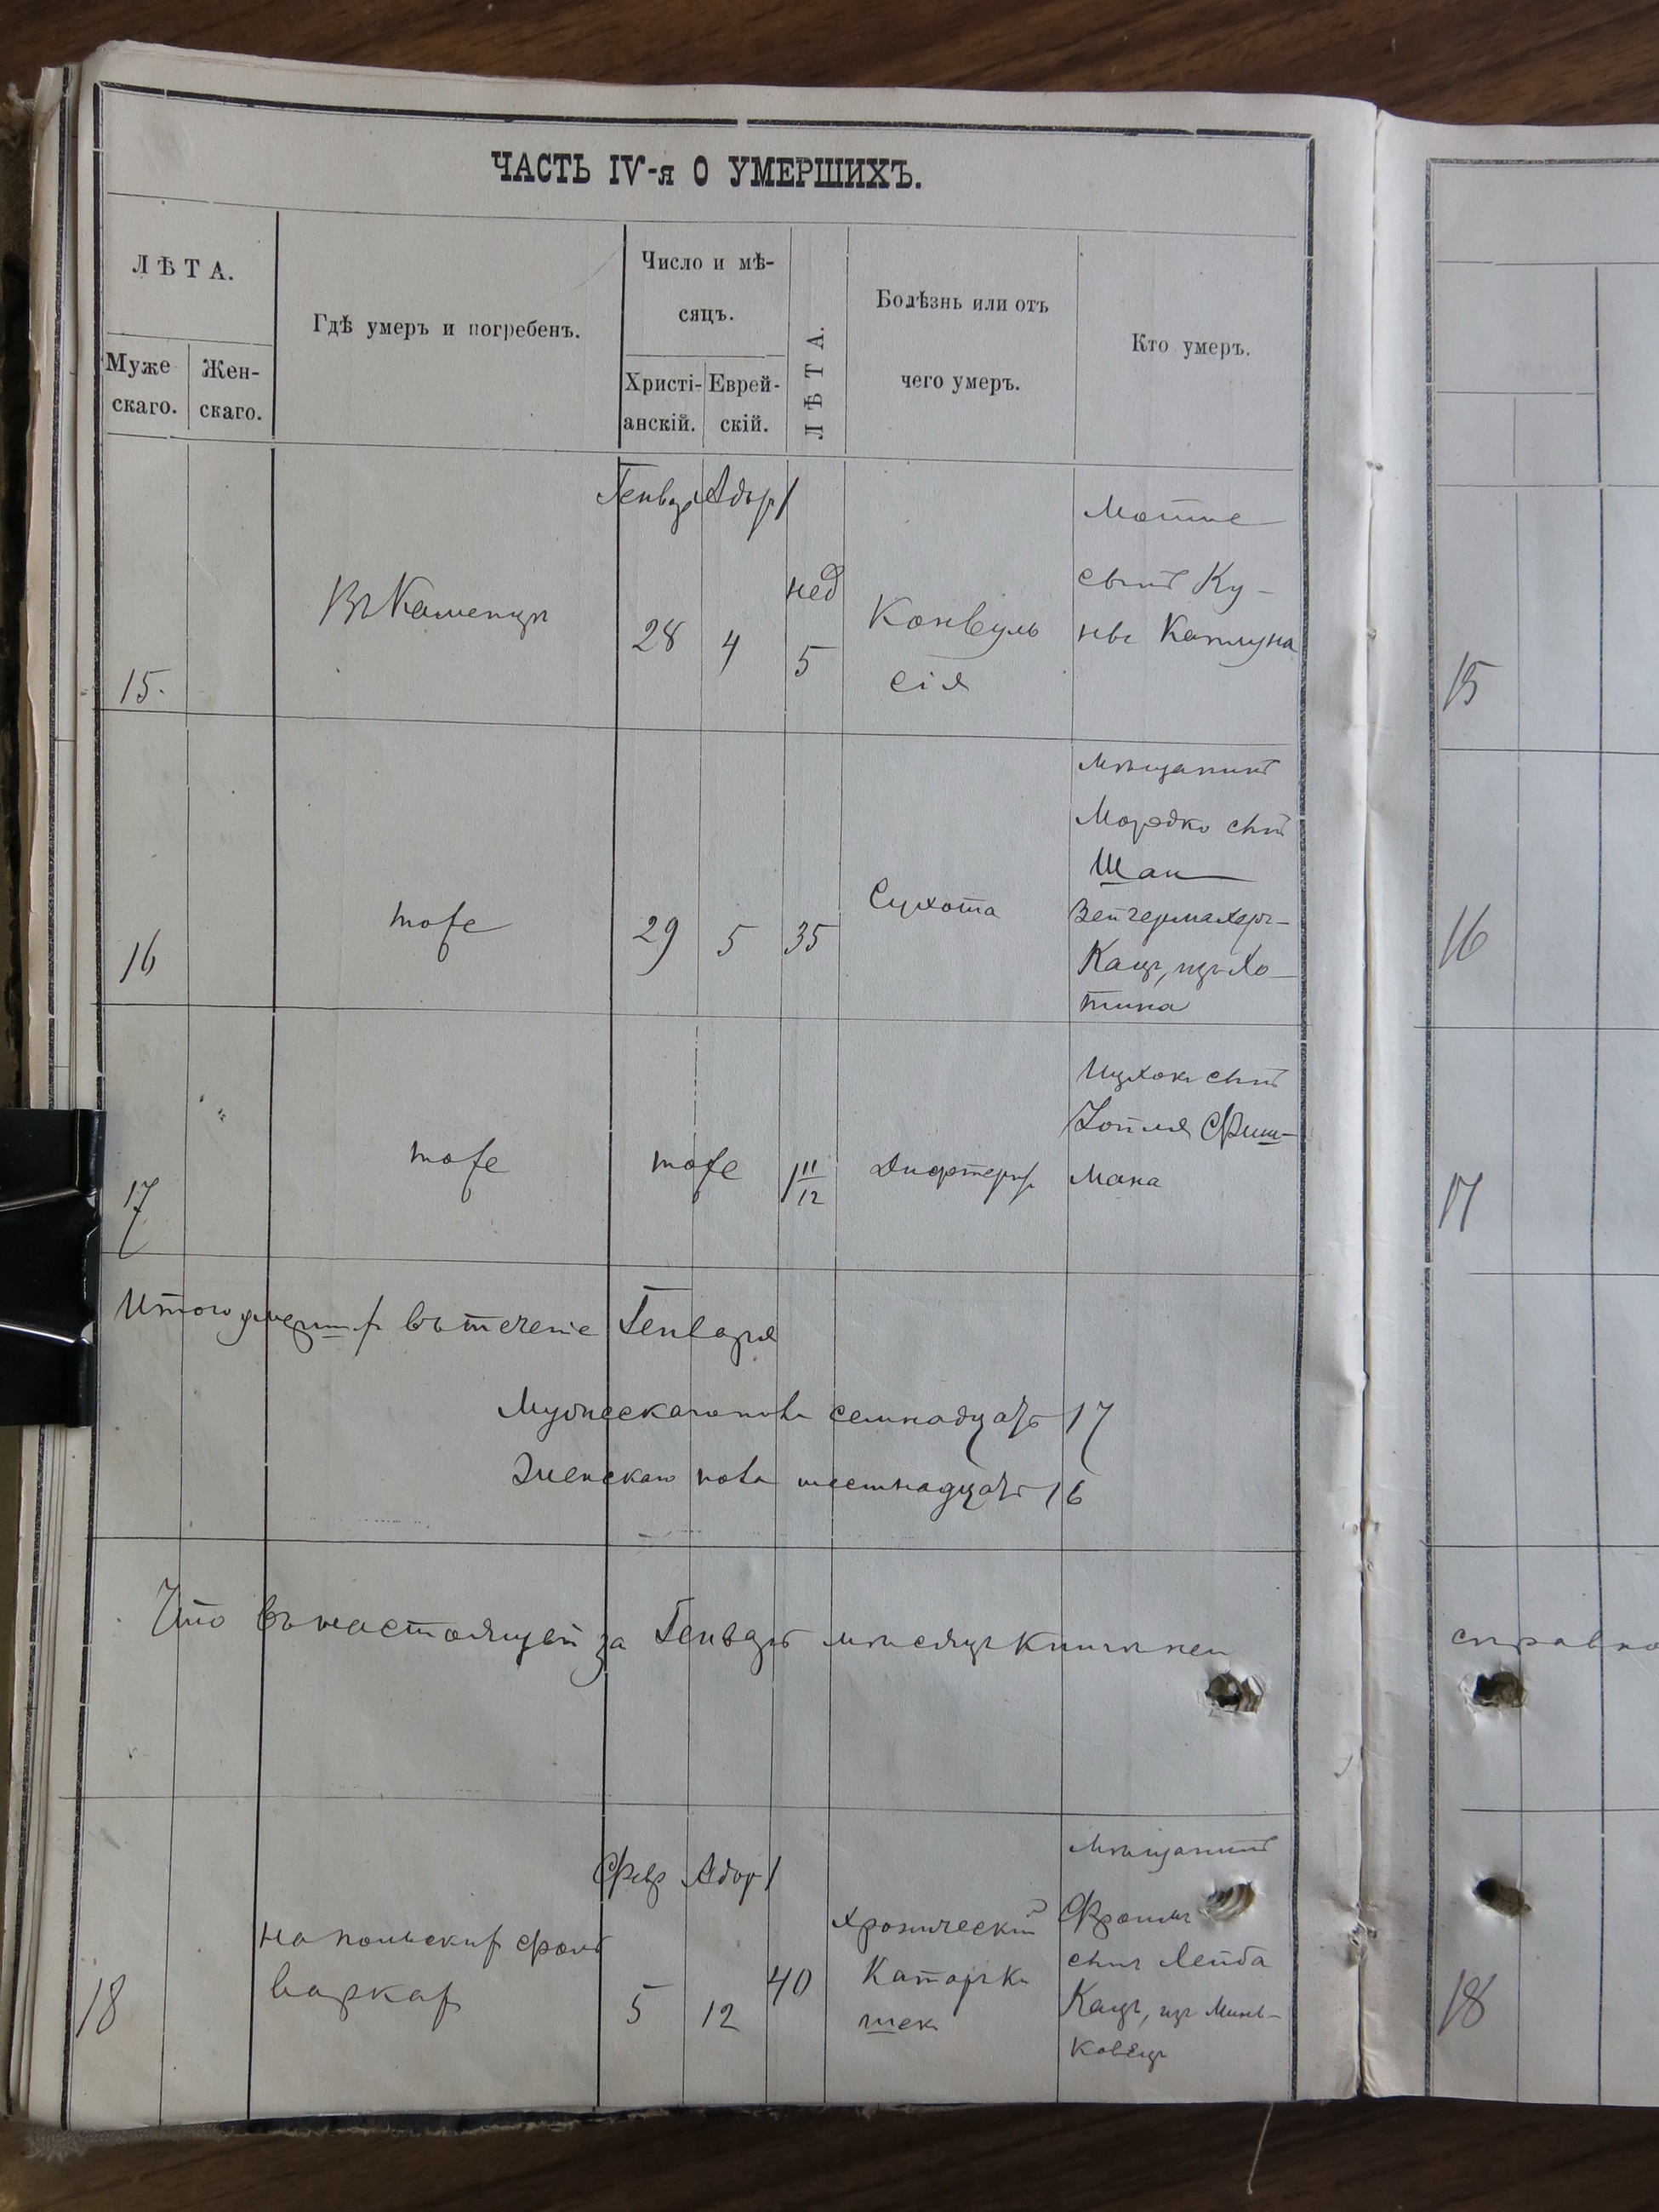 ЧАСТЬ IV-я О УМЕРШИХЪ.
ЛѢТА.
Муже
скаго.
Жен-
скаго.
Гдѣ умеръ и погребенъ.
Число и мѣ-
сяцъ.
Христі-
анскій.
Еврей-
скій.
ЛѢТА.
Болѣзнь или отъ
чего умеръ.
Кто умеръ.
15.
Въ Каменцѣ
Генвар
28
Адар I
4
нед
5
Конвуль
сія
Мотие
сынъ Ку-
ны Каплуна
15
16
тоже
29
5
35
Сухота
Мѣщанинъ
Мордко сынъ
Шаи
Вейгермахеръ-
Кацъ, изъ Хо-
тина
16
17
тоже
тоже
1 11/12
Дифтерія
Ицхокъ сынъ
Фиш-
мана
17
Итого умерших въ теченіе Генваря
Мужескаго пола семнадцать 17
Женскаго пола шестнадцать 16
Что въ настоящей за Генварь мѣсяцъ книги нѣт
справко
18
на польских фоль
варках
Февр
5
Адар I
12
40
Хроническій
Катаръ Ки
шек
Мѣщанинъ
Фроимъ
сынъ Лейба
Кацъ, изъ Минь-
ковецъ
18